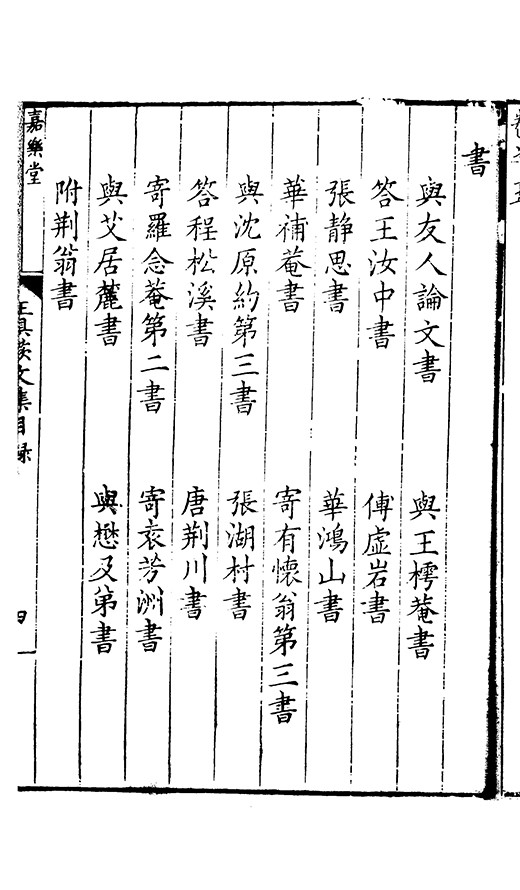 書
與友人論文書　與王樗菴書
答王汝中書　傅虛岩書
張靜思書　華鴻山書
華補菴書　寄有懷翁第三書
與沈原約第三書　張湖村書
答程松溪書　唐荆川書
寄羅念菴第二書　寄袁芳洲書
與艾居麓書　與懋及弟書
附荆翁書
嘉樂堂
文集目錄
四